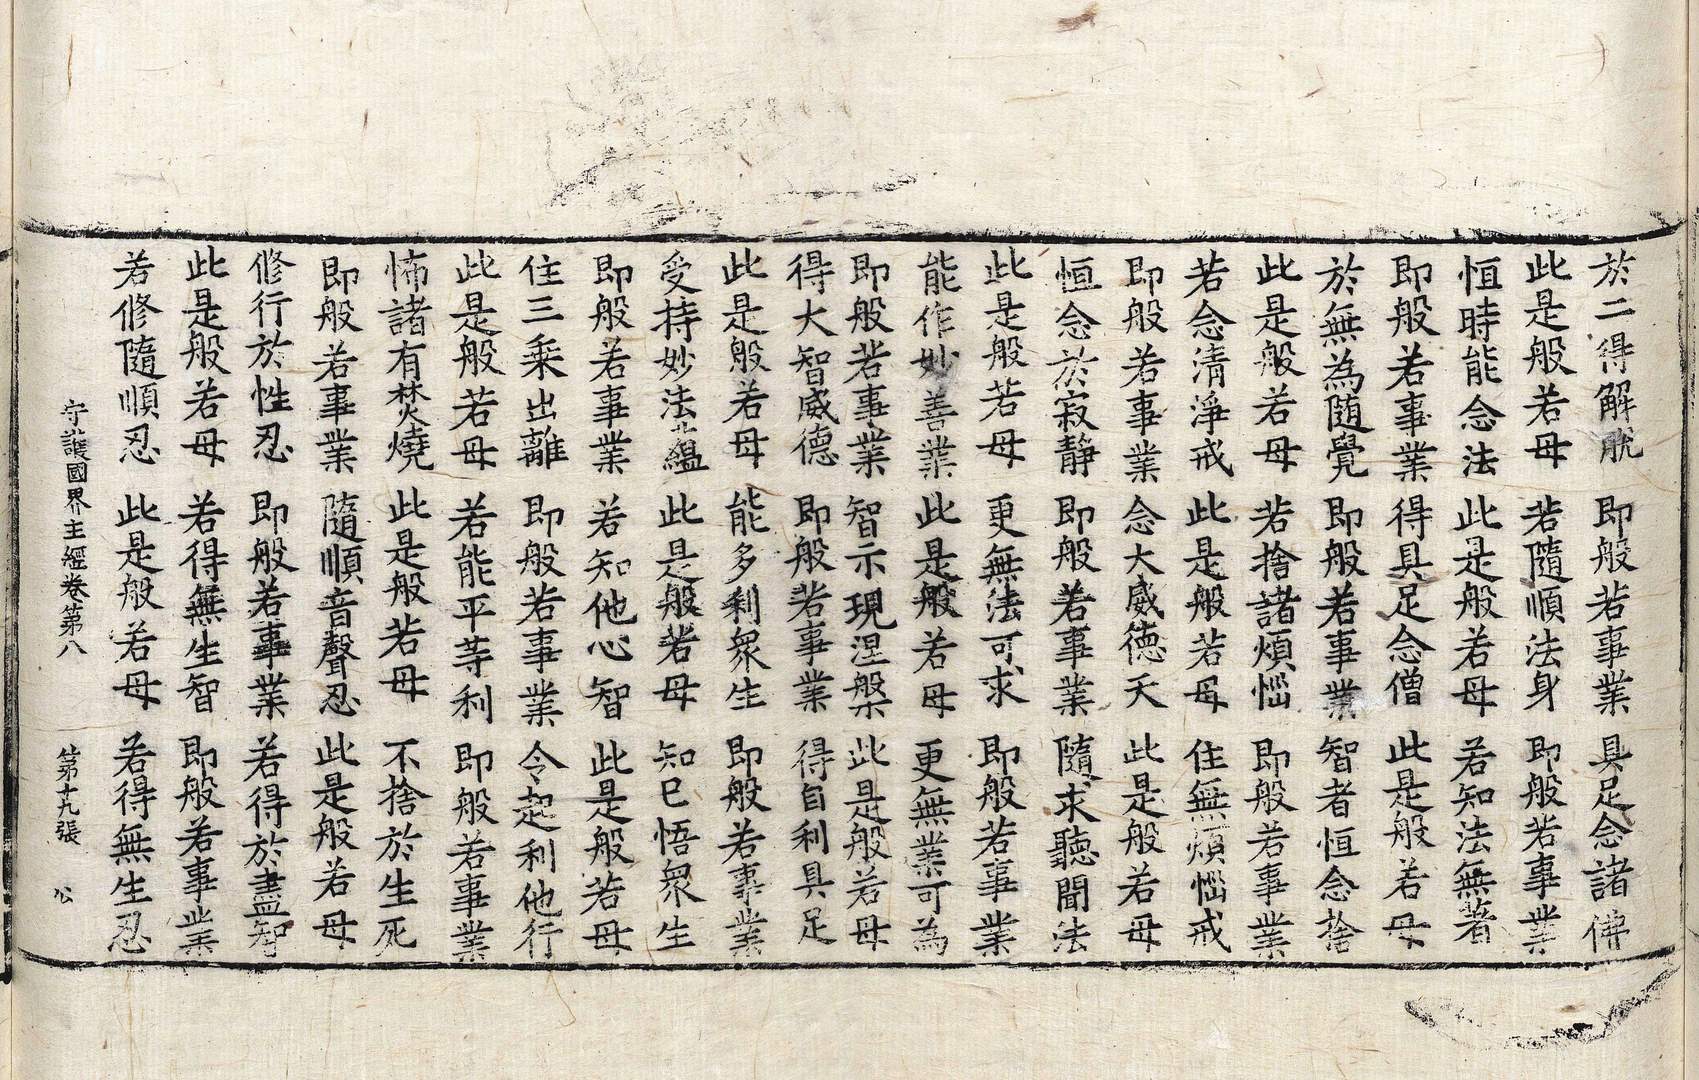 於二得解脫　即般若事業　具足念諸佛
此是般若母　若隨順法身　即般若事業
恒時能念法　此是般若母　若知法無著
即般若事業　得具足念僧　此是般若母
於無為隨覺　即般若事業　智者恒念捨
此是般若母　若捨諸煩惱　即般若事業
若念清淨戒　此是般若母　住無煩惱戒
即般若事業　念大威德天　此是般若母
恒念於寂靜　即般若事業　隨求聽聞法
此是般若母　更無法可求　即般若事業
能作妙善業　此是般若母　更無業可為
即般若事業　智示現涅槃　此是般若母
得大智威德　即般若事業　得自利具足
此是般若母　能多利眾生　即般若事業
受持妙法蘊　此是般若母　知已悟眾生
即般若事業　若知他心智　此是般若母
住三乘出離　即般若事業　令起利他行
此是般若母　若能平等利　即般若事業
怖諸有焚燒　此是般若母　不捨於生死
即般若事業　隨順音聲忍　此是般若母
修行於性忍　即般若事業　若得於盡智
此是般若母　若得無生智　即般若事業
若修隨順忍　此是般若母　若得無生忍
守護國界主經卷第八　第十九張　公